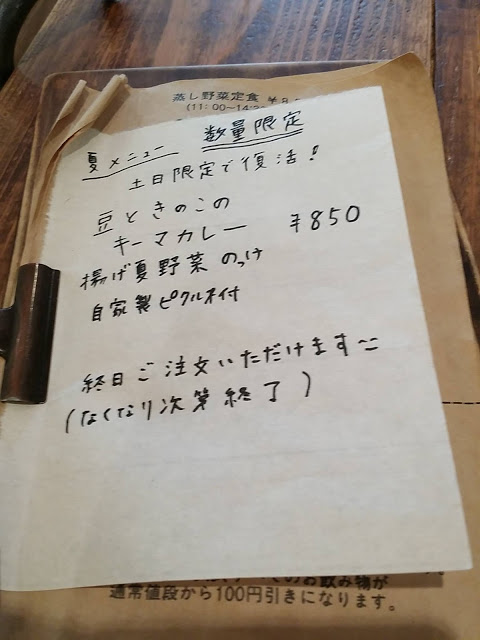 蒸し野菜定食 ¥8
(11:00~14:
夏メニュー 数量限定
土日限定で復活!
豆ときのこの
キーマカレー ¥850
揚げ夏野菜 のっけ
自家製ピクルス付
終日ご注文いただけます~
(なくなり次第終了)
のお飲み物が
通常値段から100円引きになります。